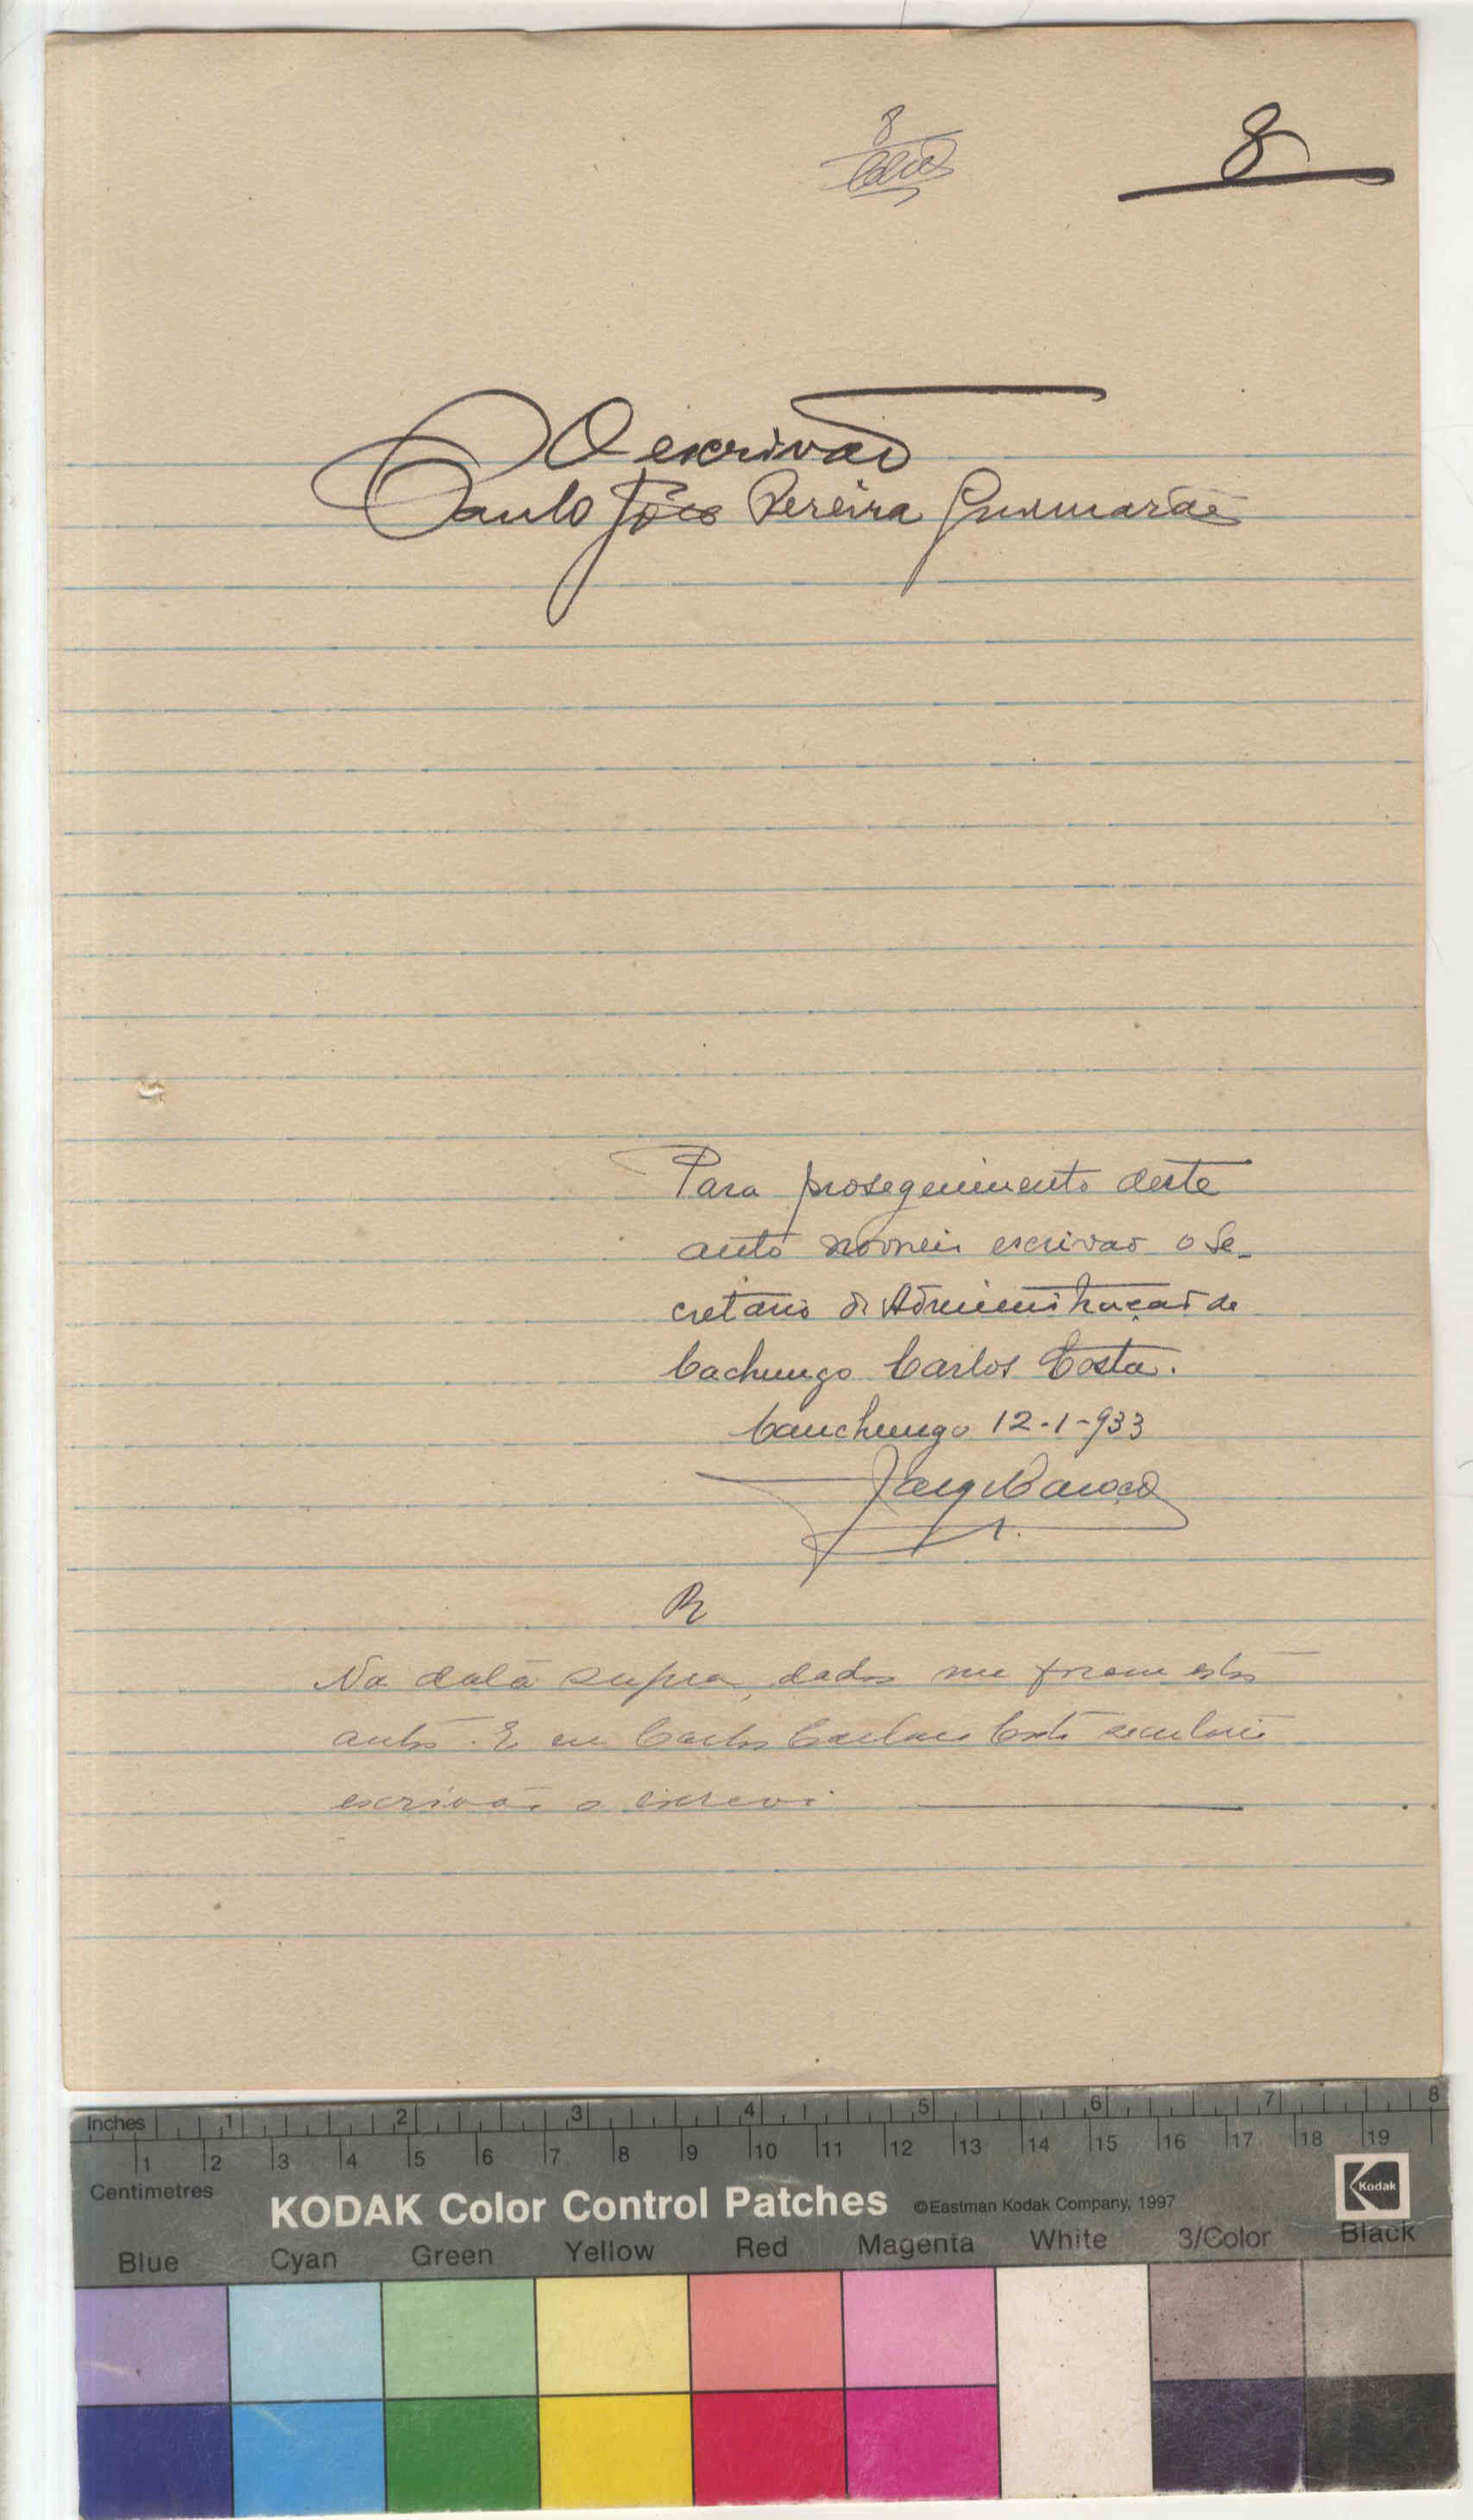 8
8
O escrivão
Paulo João Pereira Guimarães
Para proseguimento deste
auto nomeio escrivão o Se-
cretario da Administração de
Cachungo Carlos Costa.
Canchungo 12-1-933
R
Na data supra, dados me foram estes
autos. E eu Carlos Costa secretario
escrivão o escrevi
Inches 1 2 3 4 5 6 7 8
1 2 3 4 5 6 7 8 9 10 11 12 13 14 15 16 17 18 19
Centimetres
KODAK Color Control Patches ©Eastman Kodak Company, 1997 Kodak
Blue Cyan Green Yellow Red Magenta White 3/Color Black